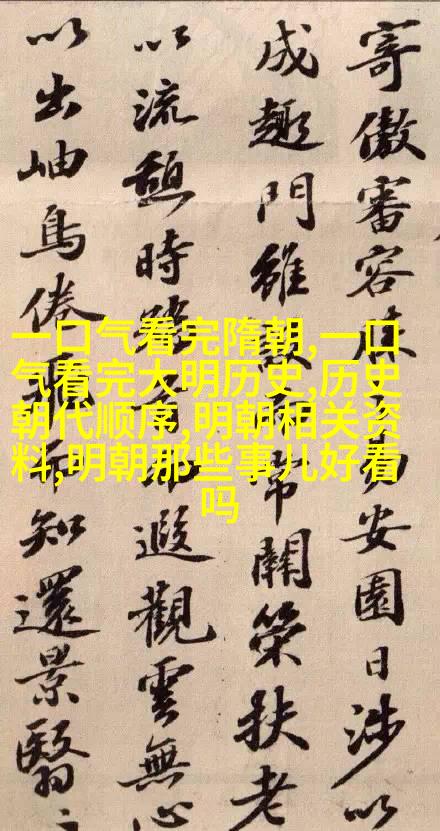 寄傲審容膝易安園日涉以
成趣門雖設而常關策扶老
以流憩時矯而遐觀雲無心
以出岫鳥倦飛而知還景翳
一口气看完隋朝,一口
气看完大明历史,历史
朝代顺序,明朝相关资
料,明朝那些事儿好看
吗